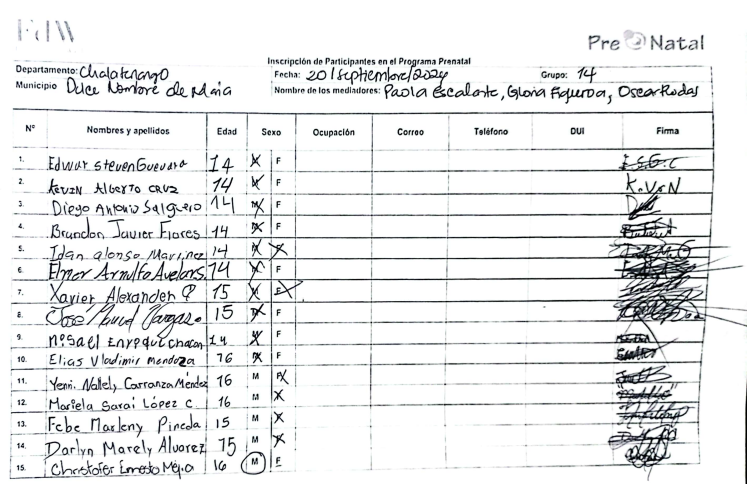 FdW
Pre Natal
Inscripción de Participantes en el Programa Prenatal
Departamento: Chalatenango Fecha: 20/septiembre/2024 Grupo: 14
Municipio Dulce Nombre de Maria Nombre de los mediadores: Paola Escalante, Gloria Figueroa, Oscar Rodas
N° Nombres y apellidos Edad Sexo Ocupación Correo Teléfono DUI Firma
1. Edwar Steven Guevara 14 M F E.S.G.C
2. Kevin Alberto Cruz 14 M F K.V.N
3. Diego Antonio Salguero 14 M F
4. Brandon Javier Flores 14 M F
5. Idan alonso Martinez 14 M F
6. Elmer Arnulfo 14 M F
7. Xavier Alexander P 15 M F
8. José David Vargas 15 M F
9. Misael Enrrique chacon 14 M F
10. Elias Vladimir mendoza 16 M F
11. Yenni Nallely Carranza Méndez 16 M F
12. Mariela Sarai López C 16 M F
13. Febe Marleny Pineda 15 M F
14. Darlyn Marely Alvarez 15 M F
15. Christofer Ernesto Mejia 16 M F